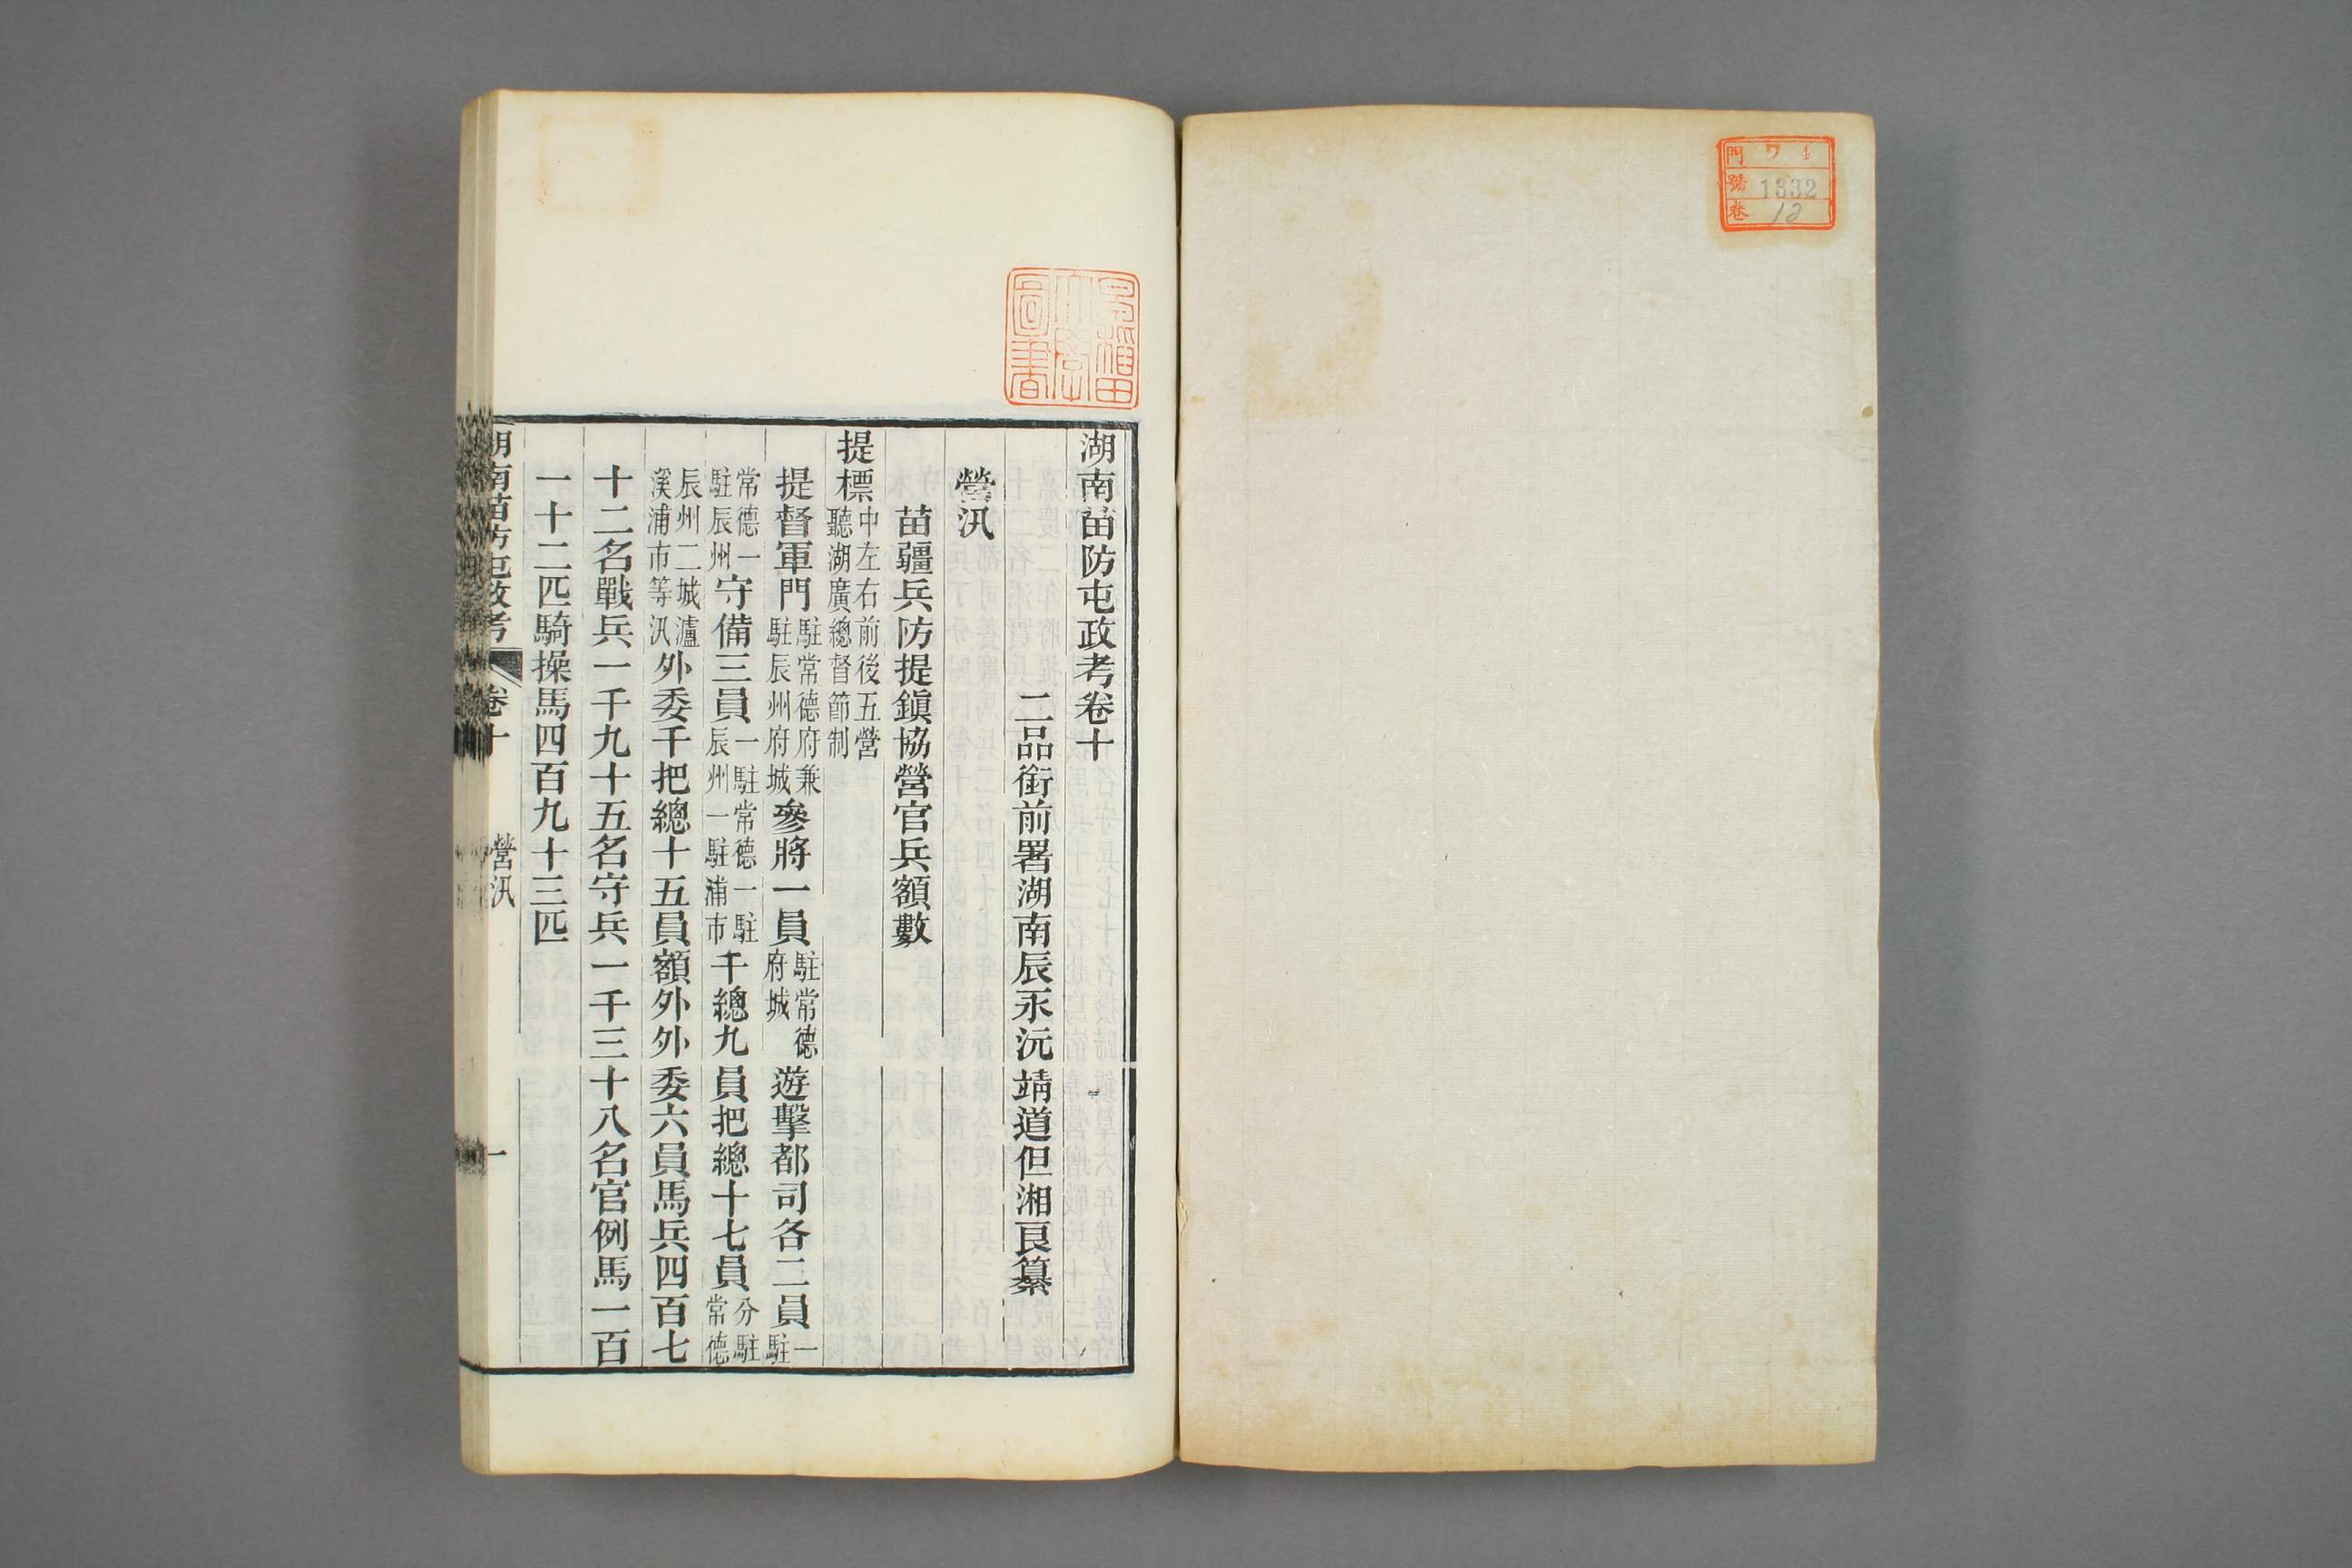 門 ワ 4
號 1332
卷 12
早稲田
大學
圖書
湖南苗防屯政考卷十
二品銜前署湖南辰永沅靖道但湘良纂
營汛
苗疆兵防提鎭協營官兵額數
提標中左右前後五營聽湖廣總督節制
提督軍門駐常德府兼駐辰州府城參將一員駐常德府城遊擊都司各二員一駐
常德一駐辰州守備三員一駐常德一駐辰州一駐浦市千總九員把總十七員分駐常德
辰州二城瀘溪浦市等汛外委千把總十五員額外外委六員馬兵四百七
十二名戰兵一千九十五名守兵一千三十八名官例馬一百
一十二匹騎操馬四百九十三匹
湖南苗防屯政考 卷十 營汛 一